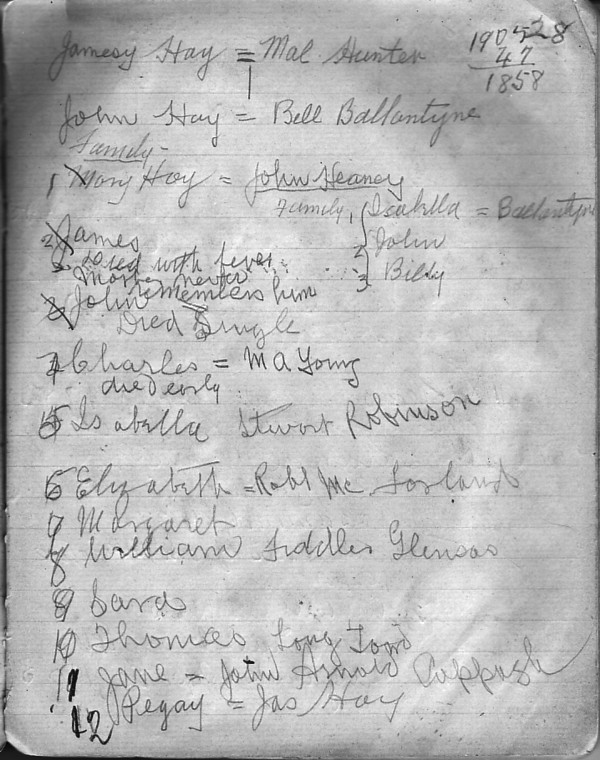 Jamesy Hay = Mal Hunter
190528
47
1858
John Hay = Bell Ballantyne
Family -
1 Mary Hay = John Heaney
Family 1 Isabella = Ballantyn
2 John
3 Billy
2 James
Died with fever
Mother never
remembers him
John
Died Single
4 Charles = M A Young
died early
5 Isabella Stewart Robinson
6 Elizabeth = Robt Mc Forland
7 Margaret
8 William Fiddler
9 Sara
10 Thomas Long Tom
11 Jane = John Arnold Cappagh
12 Pegay = Jas Hay